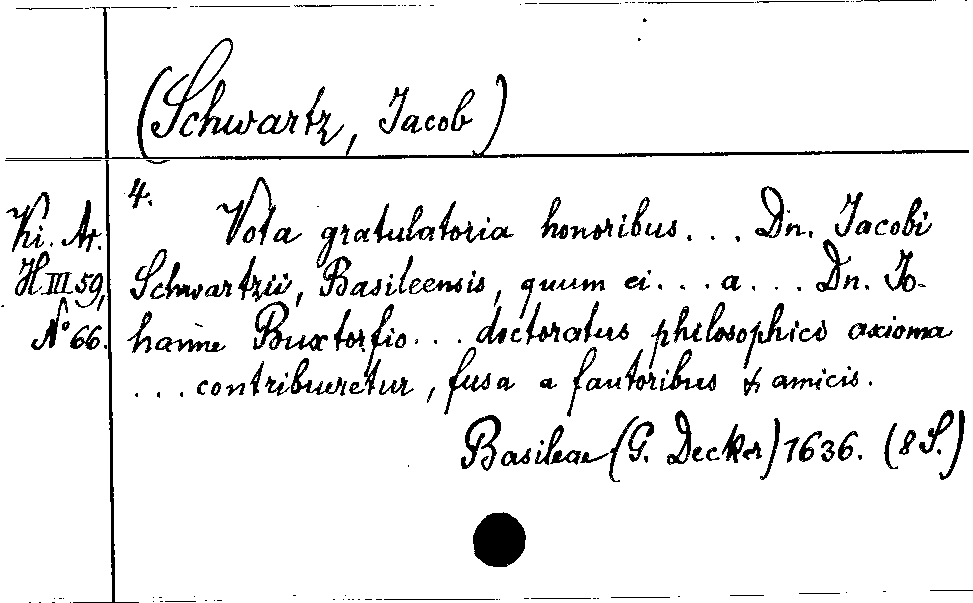 (Schwartz, Jacob)
4.
Ki. Ar.
H. III 59,
No 66.
Vota gratulatoria honoribus... Dn. Jacobi
Schwartzii, Basileensis, quum ei... a... Dn. Jo-
hanne Buxtorfio... doctoratus philosophici axioma
...contribueretur, fusa a fautoribus & amicis.
Basileae (G. Decker) 1636. (8 S.)